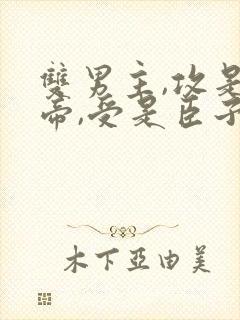 雙男主,攻是
帝,受是臣子
木下亞由美